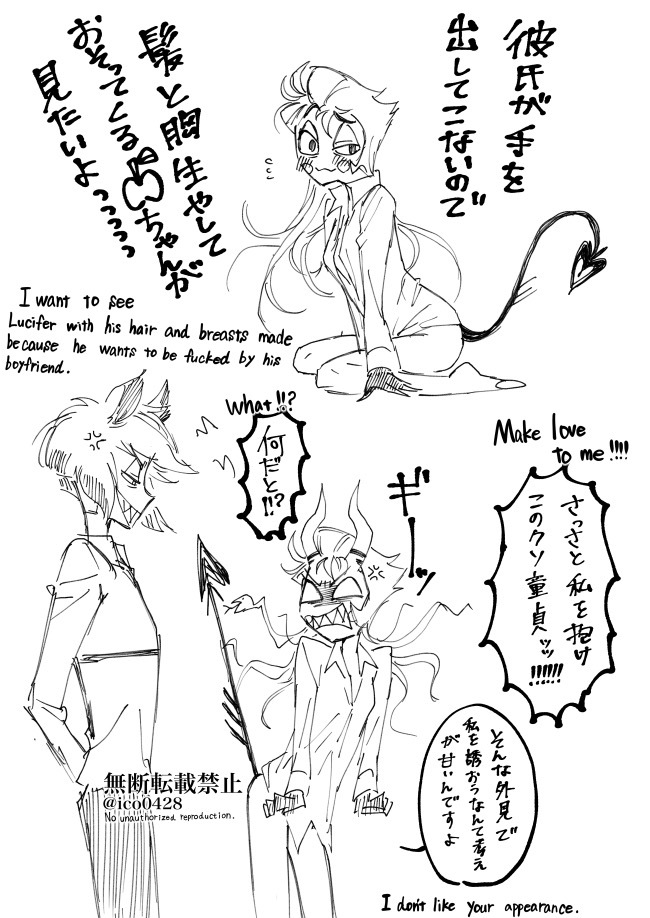 彼氏が手を
出してこないので
髪と胸生やして
おそってくる
ちゃんが
見たいよっっっっっ
I want to see
Lucifer with his hair and breasts made
because he wants to be fucked by his
boyfriend.
What!!?
何だと!!?
ギーッ
Make love
to me!!!!
さっさと私を抱け
このクソ童貞ッッ
!!!!!!
そんな外見で
私を誘おうなんて考え
が甘いんですよ
I don't like your appearance.
無断転載禁止
@ico0428
No unauthorized reproduction.